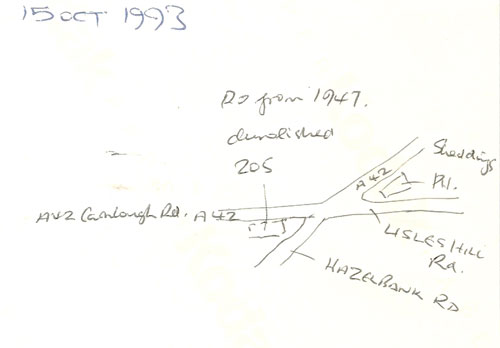 15 OCT 1993
from 1947.
demolished
205
Sheddings
A42
P.H.
A42 Carnlough Rd. A42
LISLES HILL
Rd.
HAZELBANK RD